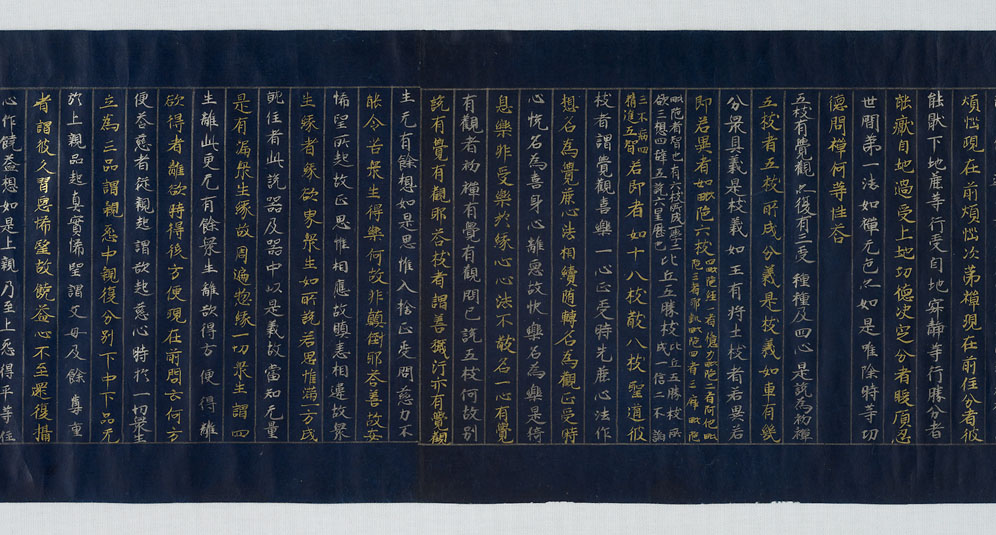 煩惱現在前煩惱次第禪現在前住分者彼
能狀下地麁等行受自地寂靜等行勝分者
能厭自地過受上地功德決定分者煖頂忍
世間第一法如禪无色亦如是唯除時等功
德問禪何等性答
五枝有覺觀亦後有三受 種種及四心是說為初禪
五枝者五枝所成分義是枝義如車有幾
分眾具義是枝義如王有將士枝者若異若
即若異者如毗陀六枝
若即者如十八枝散八枝聖道彼
枝者謂覺觀喜樂一心正受時先麁心法作
想名為覺麁心法相續隨轉名為觀正受時
心悅名為喜身心離惡故快樂名為樂是猗
息樂非受樂於緣心心法不散名一心有覺
有觀者初禪有覺有觀問已說五枝何故別
說有覺有觀耶答枝者謂善穢汙亦有覺觀
生元有餘想如是思惟入捨正受問慈力不
能令苦眾生得樂何故非顛倒耶答善故安
悕望所起故正思惟相應故順恚相違故眾
生緣者緣欲界眾生如所說若思惟滿一方成
就住者此說器及器中以是義故當知无量
是有漏眾生緣故周遍惣緣一切眾生謂四
生離此更无有餘眾生離欲得方便得離
欲得者離欲時得後方便現在前問云何方
便答慈者從親起謂欲起慈心時於一切眾生
立為三品謂親怨中親復分別下中下品无
於上親品起真實悕望謂父母及餘尊重
者謂彼久有恩悕望故饒益心不至還復攝
心作饒益想如是上親乃至上怨得平等住